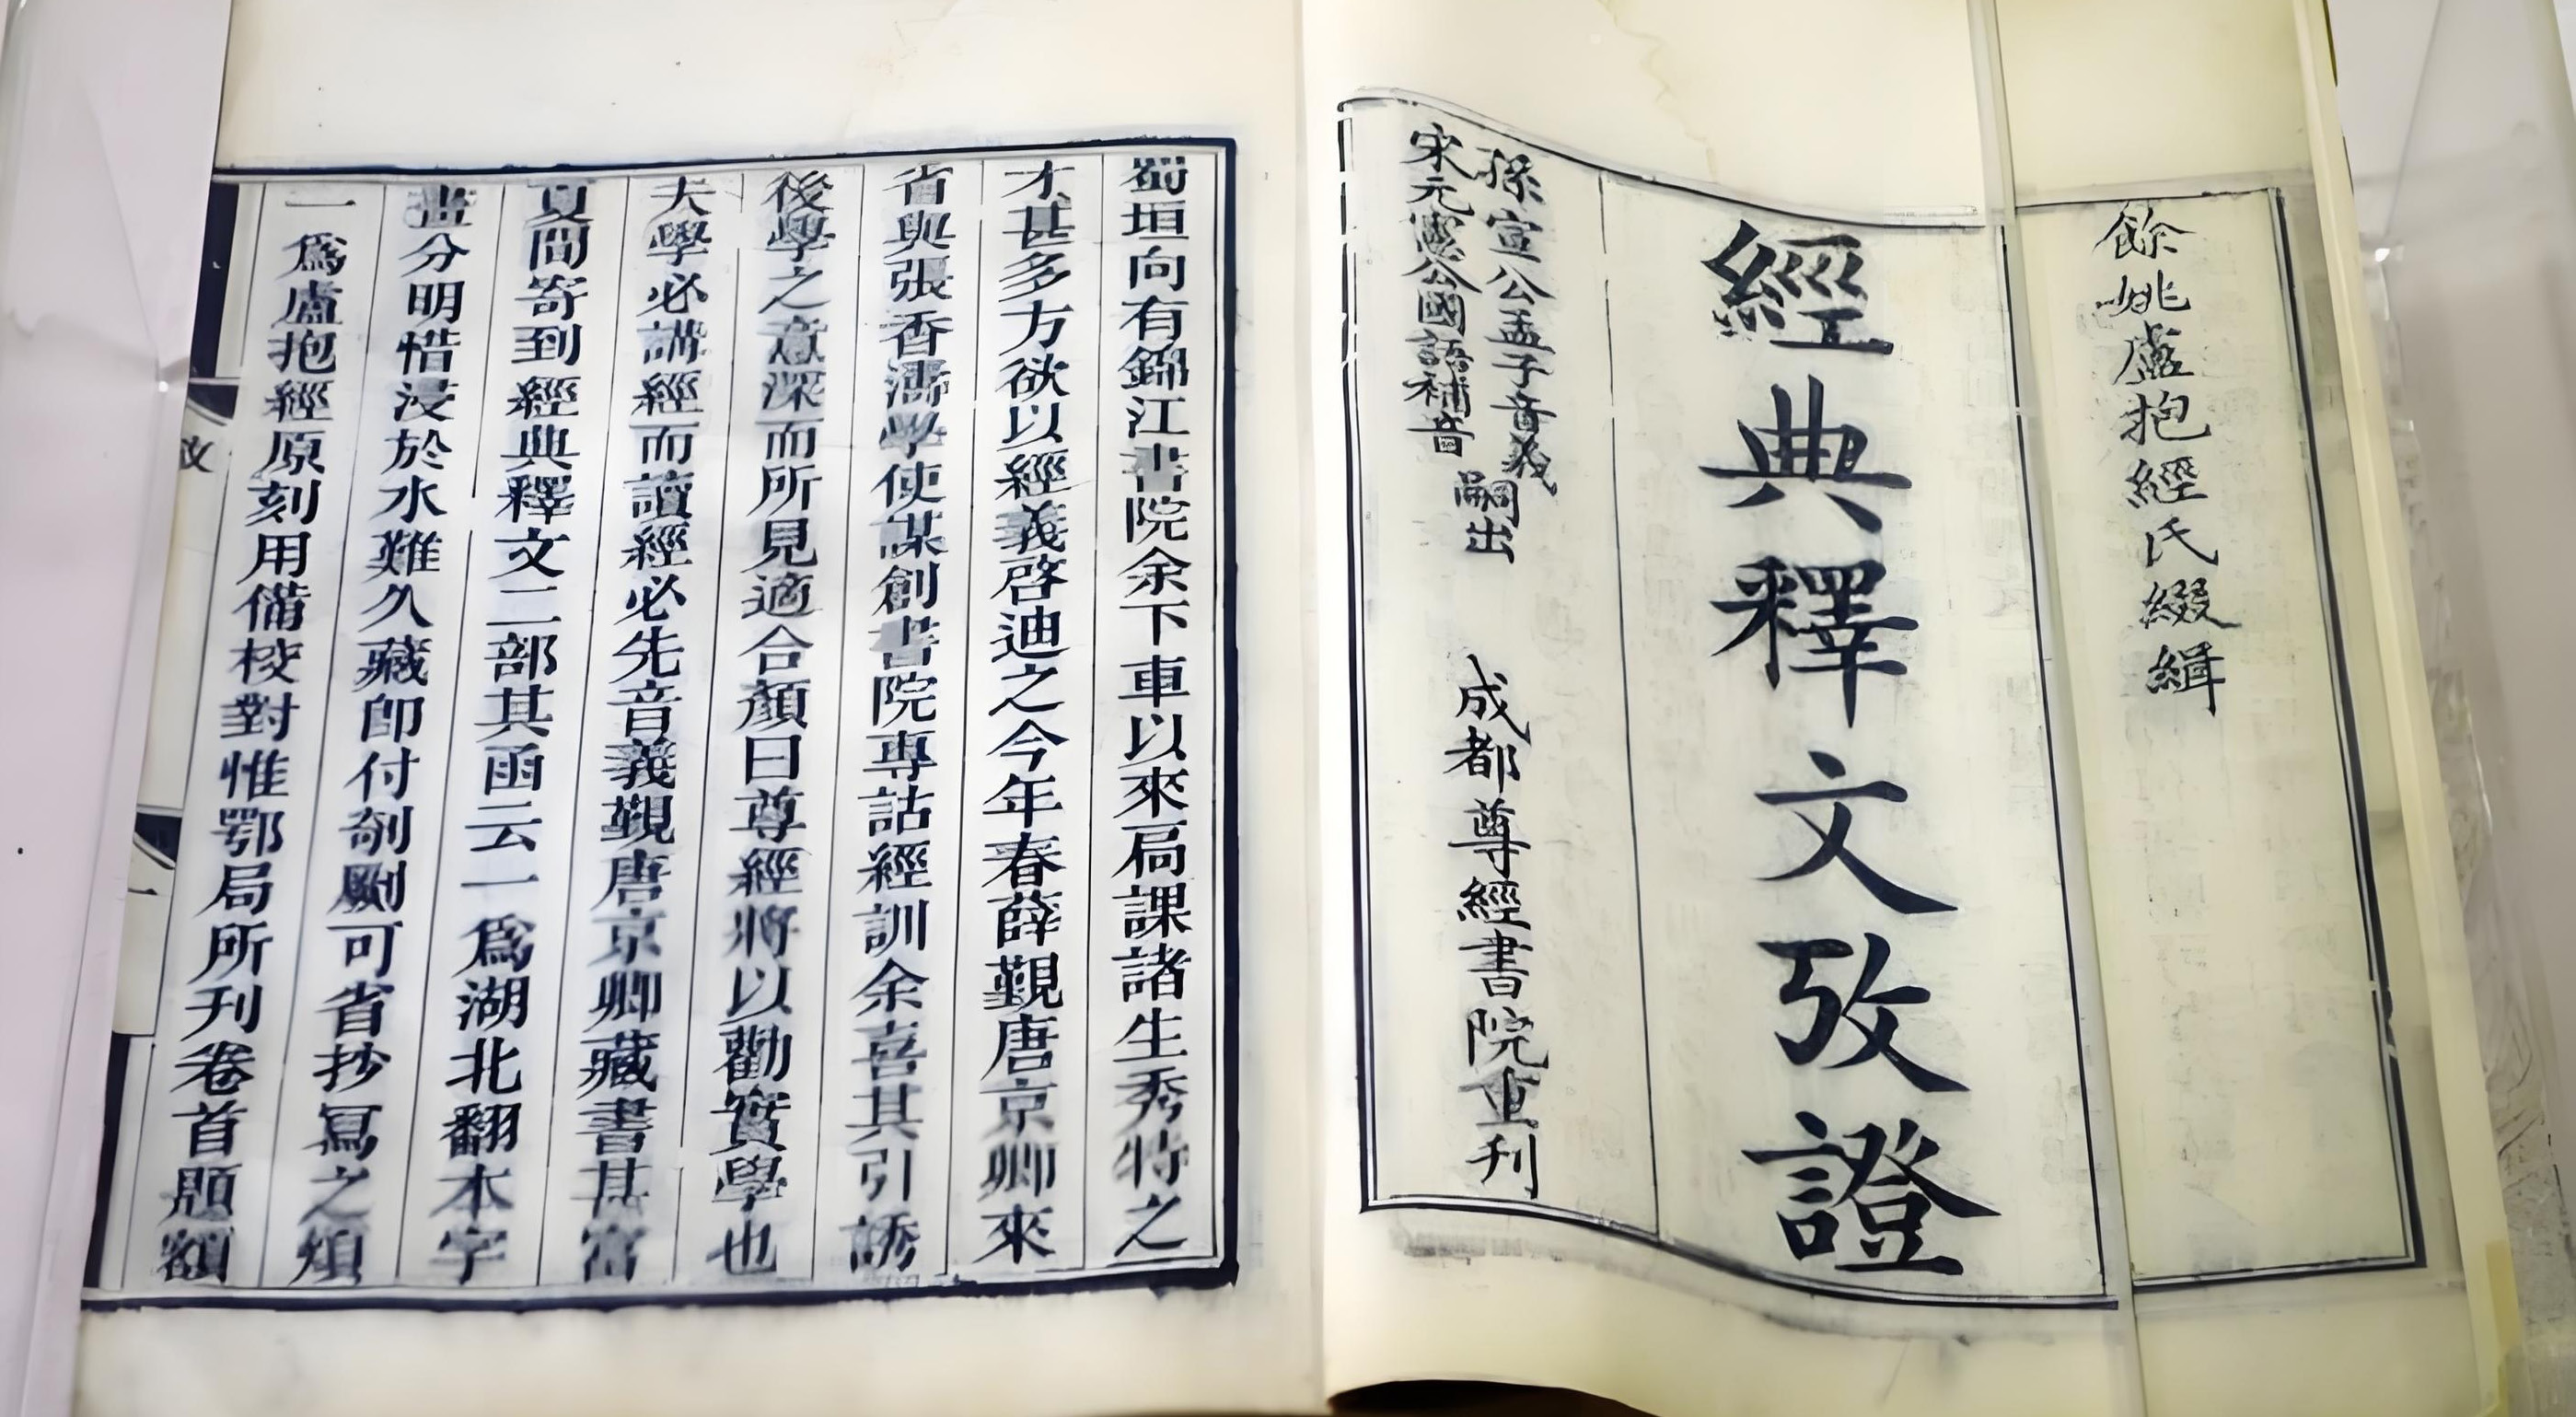 餘姚盧抱經氏綴緝
經典釋文攷證
孫宣公孟子音義
宋元憲公國語補音
嗣出
成都尊經書院重刋
蜀垣向有錦江書院余下車以來扃課諸生秀特之
才甚多方欲以經義啓迪之今年春薛覲唐京卿來
省與張香濤學使謀創書院專詁經訓余喜其引誘
後學之意深而所見適合顏曰尊經將以勸實學也
夫學必講經而讀經必先音義覲唐京卿藏書甚富
夏間寄到經典釋文二部其函云一爲湖北翻本字
畫分明惜浸於水難久藏卽付剞劂可省抄冩之煩
一爲盧抱經原刻用備校對惟鄂局所刊卷首題額
攷
一